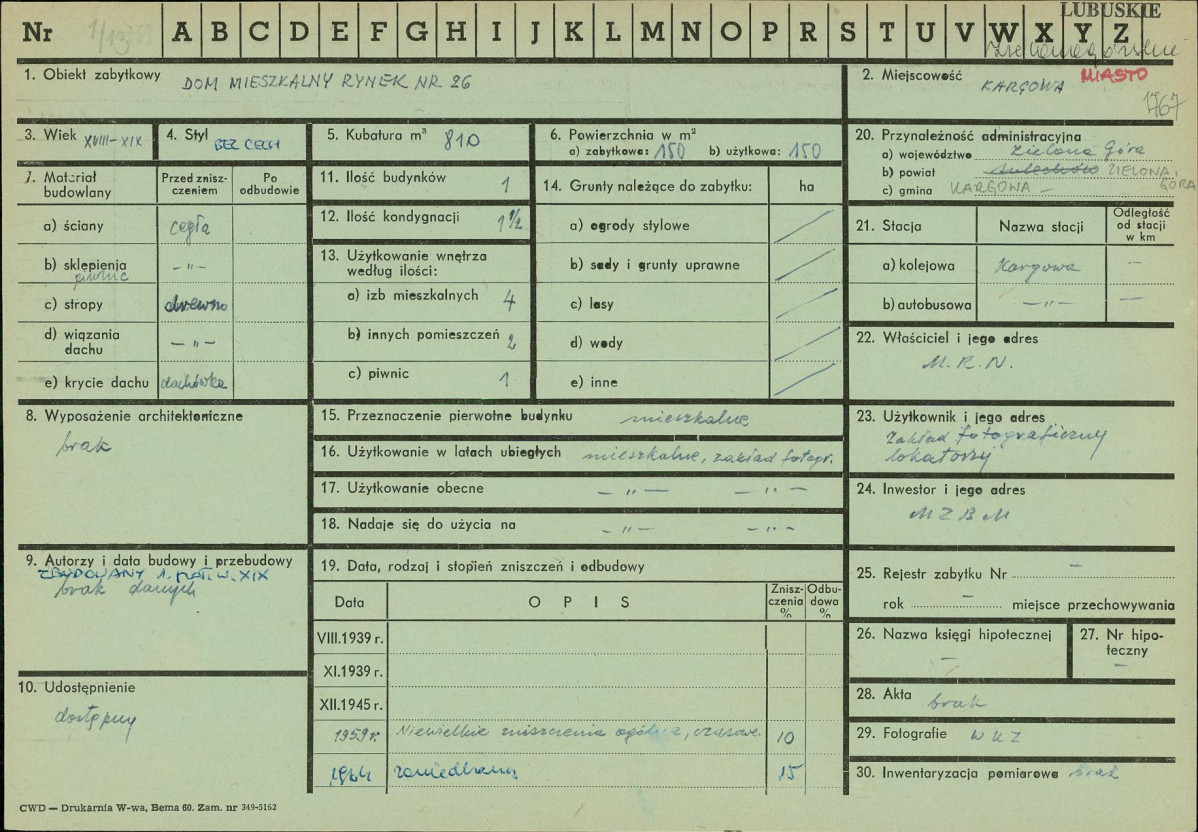 LUBUSKIE
Nr 1/13 A B C D E F G H I J K L M N O P R S T U V W X Y Z
1. Obiekt zabytkowy DOM MIESZKALNY RYNEK NR 26
2. Miejscowość KARGOWA MIASTO
1767
3. Wiek XVIII-XIX
4. Styl BEZ CECH
5. Kubatura m³ 810
6. Powierzchnia w m²
a) zabytkowa: 150 b) użytkowa: 150
20. Przynależność administracyjna
a) województwo Zielona Góra
b) powiat Sulechów ZIELONA GÓRA
c) gmina KARGOWA –
7. Materiał budowlany
Przed zniszczeniem
Po odbudowie
a) ściany cegła
b) sklepienia piwnic – „ –
c) stropy drewno
d) wiązania dachu – „ –
e) krycie dachu dachówka
11. Ilość budynków 1
12. Ilość kondygnacji 1 1/2
13. Użytkowanie wnętrza według ilości:
a) izb mieszkalnych 4
b) innych pomieszczeń 2
c) piwnic 1
14. Grunty należące do zabytku: ha
a) ogrody stylowe
b) sady i grunty uprawne
c) lasy
d) wody
e) inne
21. Stacja
Nazwa stacji
Odległość od stacji w km
a) kolejowa Kargowa –
b) autobusowa – „ – –
22. Właściciel i jego adres
M. R. N.
8. Wyposażenie architektoniczne
brak
15. Przeznaczenie pierwotne budynku mieszkalne
16. Użytkowanie w latach ubiegłych mieszkalne, zakład fotogr.
17. Użytkowanie obecne – „ – – „ –
18. Nadaje się do użycia na – „ – – „ –
23. Użytkownik i jego adres
Zakład fotograficzny
lokatorzy
24. Inwestor i jego adres
MZBM
9. Autorzy i data budowy i przebudowy
ZBUDOWANY 1. POŁ. W. XIX
brak danych
10. Udostępnienie
dostępny
19. Data, rodzaj i stopień zniszczeń i odbudowy
Data
OPIS
Zniszczenia %
Odbudowa %
VIII.1939 r.
XI.1939 r.
XII.1945 r.
1959 r. Niewielkie zniszczenia ogólne, czasowe. 10
1964 zaniedbany 15
25. Rejestr zabytku Nr –
rok – miejsce przechowywania
26. Nazwa księgi hipotecznej
–
27. Nr hipoteczny
–
28. Akta brak
29. Fotografie WKZ
30. Inwentaryzacja pomiarowa brak
CWD — Drukarnia W-wa, Bema 60. Zam. nr 349-5162